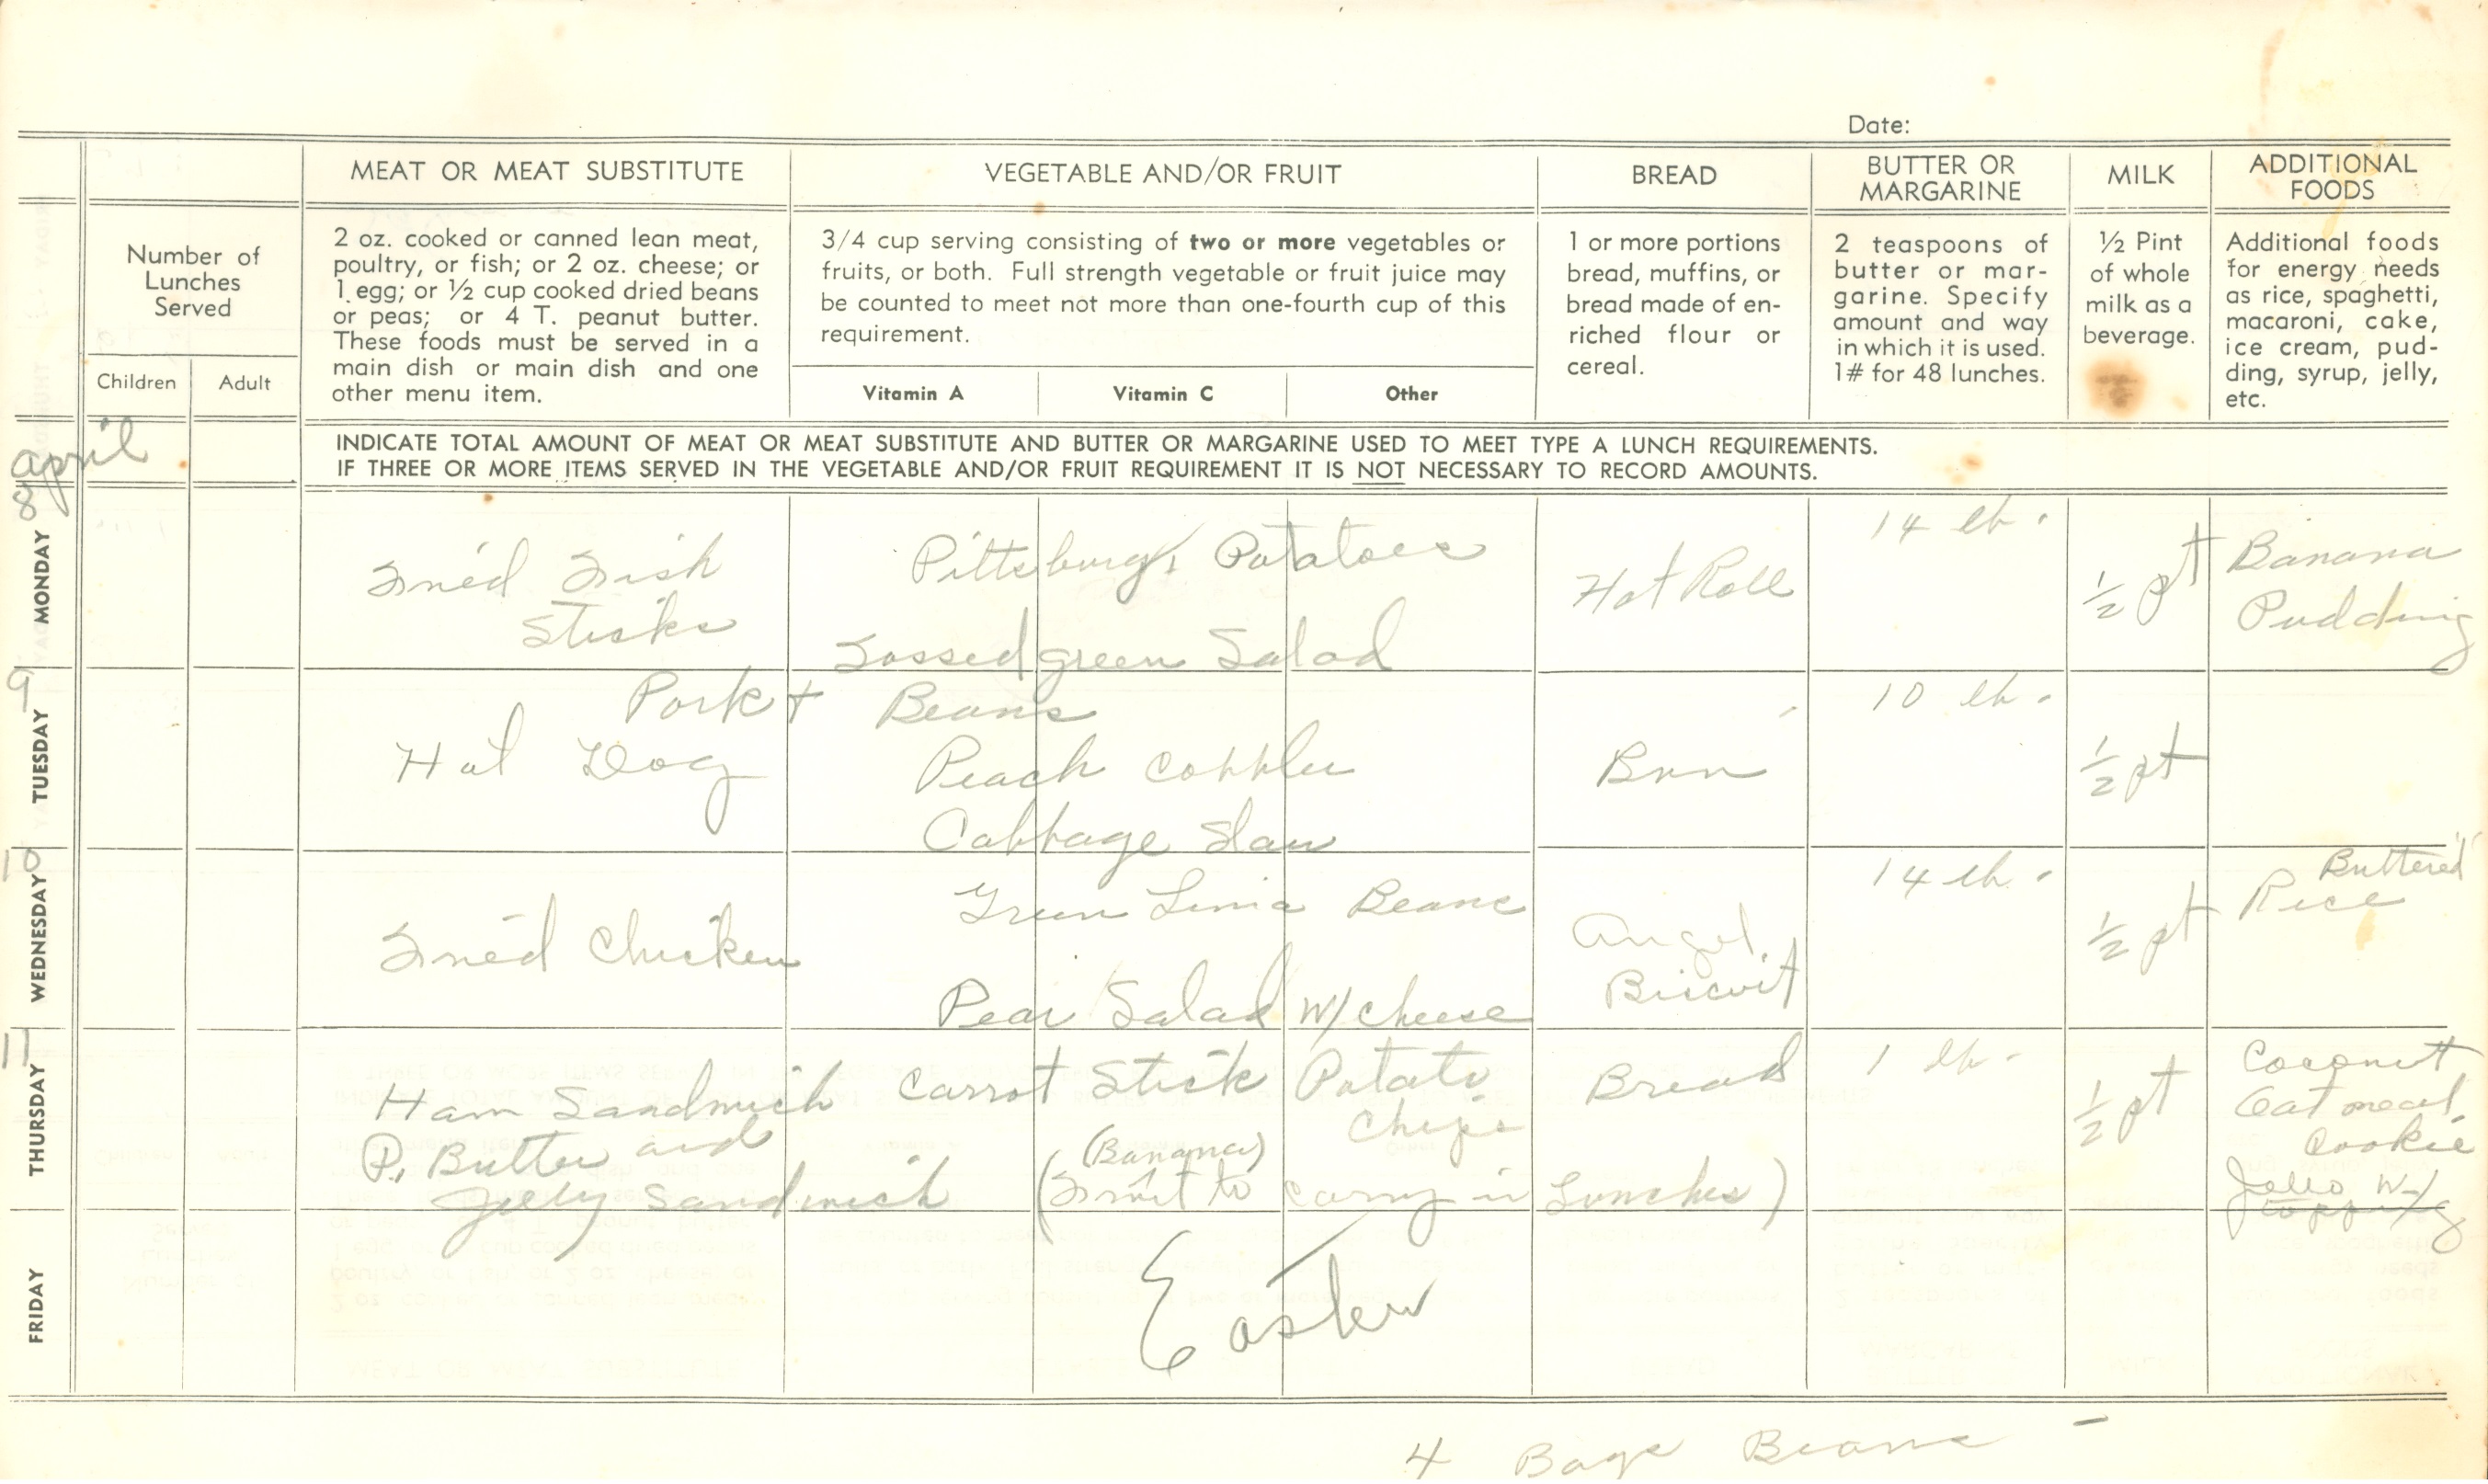 Date:
MEAT OR MEAT SUBSTITUTE
VEGETABLE AND/OR FRUIT
BREAD
BUTTER OR
MARGARINE
MILK
ADDITIONAL
FOODS
Number of
Lunches
Served
Children
Adult
2 oz. cooked or canned lean meat,
poultry, or fish; or 2 oz. cheese; or
1 egg; or ½ cup cooked dried beans
or peas; or 4 T. peanut butter.
These foods must be served in a
main dish or main dish and one
other menu item.
3/4 cup serving consisting of two or more vegetables or
fruits, or both. Full strength vegetable or fruit juice may
be counted to meet not more than one-fourth cup of this
requirement.
Vitamin A
Vitamin C
Other
1 or more portions
bread, muffins, or
bread made of en-
riched flour or
cereal.
2 teaspoons of
butter or mar-
garine. Specify
amount and way
in which it is used.
1# for 48 lunches.
½ Pint
of whole
milk as a
beverage.
Additional foods
for energy needs
as rice, spaghetti,
macaroni, cake,
ice cream, pud-
ding, syrup, jelly,
etc.
INDICATE TOTAL AMOUNT OF MEAT OR MEAT SUBSTITUTE AND BUTTER OR MARGARINE USED TO MEET TYPE A LUNCH REQUIREMENTS.
IF THREE OR MORE ITEMS SERVED IN THE VEGETABLE AND/OR FRUIT REQUIREMENT IT IS NOT NECESSARY TO RECORD AMOUNTS.
April
8
MONDAY
Fried Fish
Sticks
Pittsburgh Potatoes
Tossed green Salad
Hot Roll
14 lb.
½ pt
Banana
Pudding
9
TUESDAY
Pork + Beans
Hot Dog
Peach Cobbler
Cabbage Slaw
Bun
10 lb.
½ pt
10
WEDNESDAY
Fried Chicken
Green Lima Beans
Pear Salad W/ Cheese
Angel
Biscuit
14 lb.
½ pt
Buttered
Rice
11
THURSDAY
Ham Sandwich
P. Butter and
Jelly Sandwich
Carrot Stick
Potato
Chips
(Banana)
(Fruit to carry in Lunches)
Bread
1 lb.
½ pt
Coconut
Oatmeal
Cookie
Jello W/
topping
FRIDAY
Easter
4 Bags Beans -